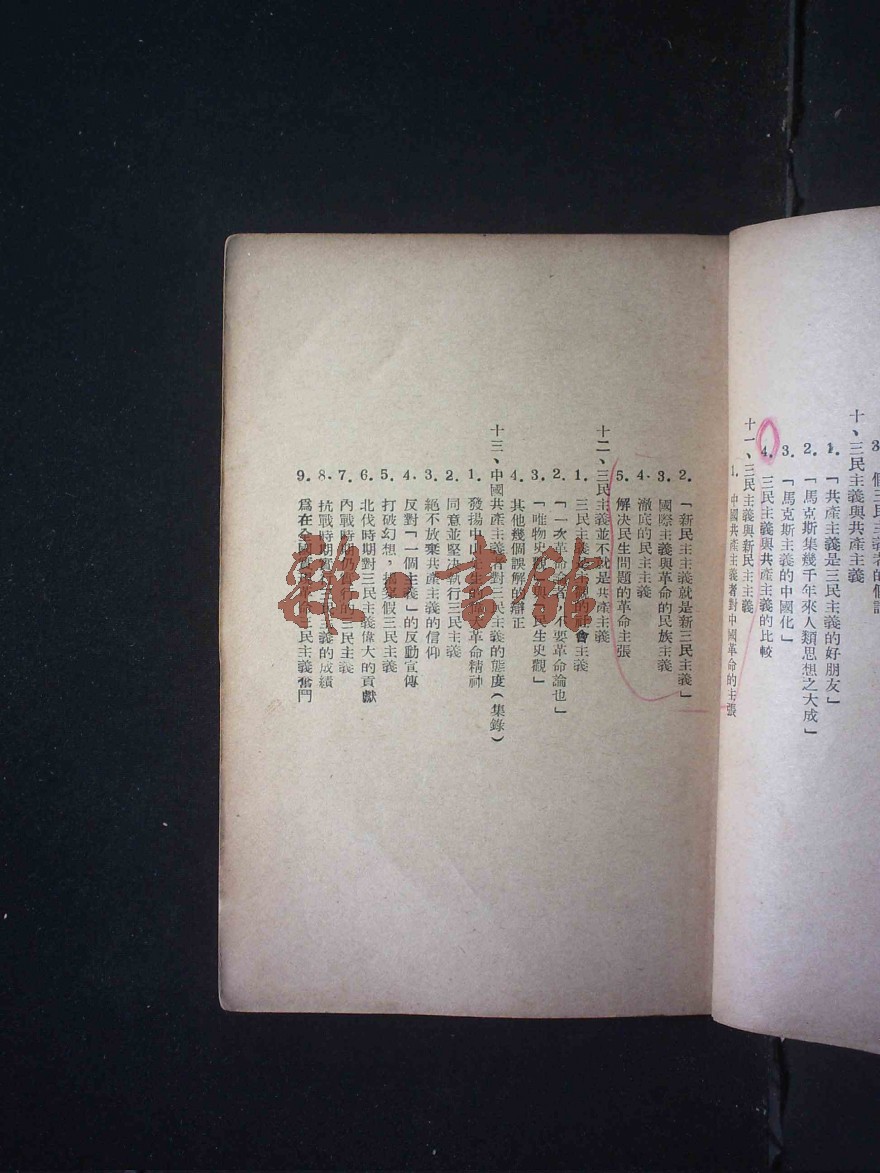 十、三民主義與共產主義
1.「共產主義是三民主義的好朋友」
2.「馬克斯集幾千年來人類思想之大成」
3.「馬克斯主義的中國化」
4. 三民主義與共產主義的比較
十一、三民主義與新民主主義
1. 中國共產主義者對中國革命的主張
2.「新民主主義就是新三民主義」
3. 國際主義與革命的民族主義
4. 澈底的民主主義
5. 解決民生問題的革命主張
十二、三民主義並不就是共產主義
1. 三民主義 社會主義
2.「一次革命 不要革命論也」
3.「唯物史觀 民生史觀」
4. 其他幾個誤解的辯正
十三、中國共產主義 對三民主義的態度(集錄)
1. 發揚中山先生的偉大革命精神
2. 同意並堅決執行三民主義
3. 絕不放棄共產主義的信仰
4. 反對「一個主義」的反動宣傳
5. 打破幻想, 假三民主義
6. 北伐時期對三民主義偉大的貢獻
7. 內戰時期仍 行的三民主義
8. 抗戰時期實 三民主義的成績
9. 為在全國 三民主義奮鬥
雜·書館